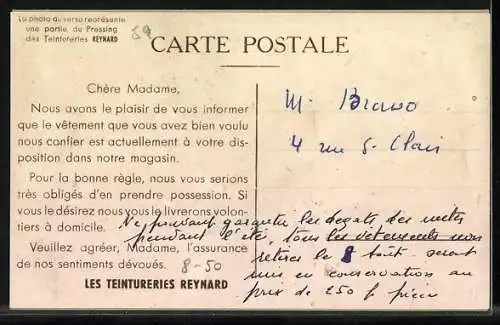 La photo du verso représente
une partie du Pressing
des Teintureries REYNARD
59
CARTE POSTALE
Chère Madame,
Nous avons le plaisir de vous informer
que le vêtement que vous avez bien voulu
nous confier est actuellement à votre dis-
position dans notre magasin.
Pour la bonne règle, nous vous serions
très obligés d'en prendre possession. Si
vous le désirez nous vous le livrerons volon-
tiers à domicile.
Veuillez agréer, Madame, l'assurance
de nos sentiments dévoués.
8-50
LES TEINTURERIES REYNARD
M. Bravo
4 rue S. Clair
Ne pouvant garantir les degats des mites
pendant l'été, tous les vêtements non
retirés le 8 août seront
mis en conservation au
prix de 250 f pièce